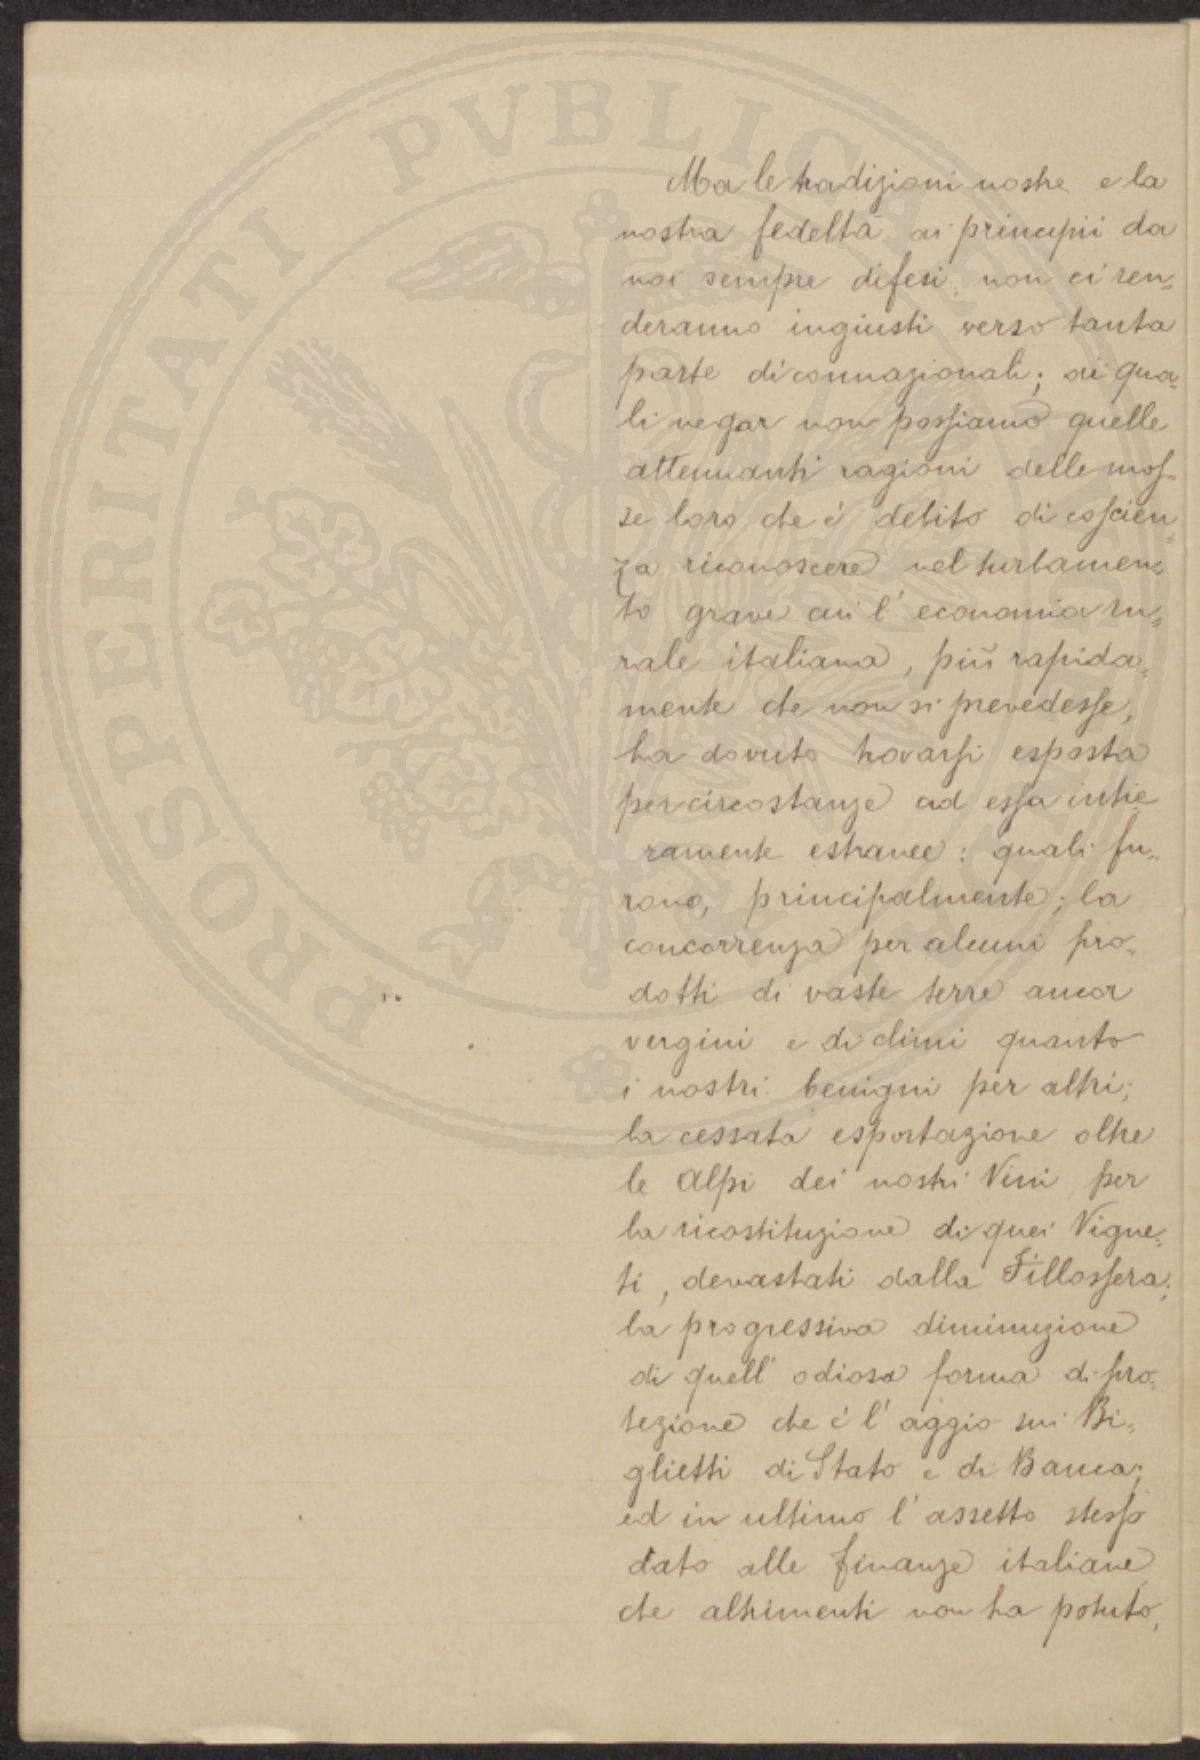 PROSPERITATI PVBLICAE
Ma le tradizioni nostre e la
nostra fedeltà ai principii da
noi sempre difesi, non ci ren=
deranno ingiusti verso tanta
parte di connazionali; ai qua=
li negar non possiamo quelle
attenuanti ragioni delle mos=
se loro che è debito di coscien
za riconoscere nel turbamen=
to grave cui l'economia ru=
rale italiana, più rapida=
mente che non si prevedesse,
ha dovuto trovarsi esposta
per circostanze ad essa intie
ramente estranee: quali fu=
rono, principalmente; la
concorrenza per alcuni pro=
dotti di vaste terre ancor
vergini e di climi quanto
i nostri benigni per altri;
la cessata esportazione oltre
le Alpi dei nostri Vini per
la ricostituzione di quei Vigne=
ti, devastati dalla Fillossera;
la progressiva diminuzione
di quell'odiosa forma di pro=
tezione che è l'aggio sui Bi=
glietti di Stato e di Banca;
ed in ultimo l'assetto stesso
dato alle finanze italiane
che altrimenti non ha potuto,